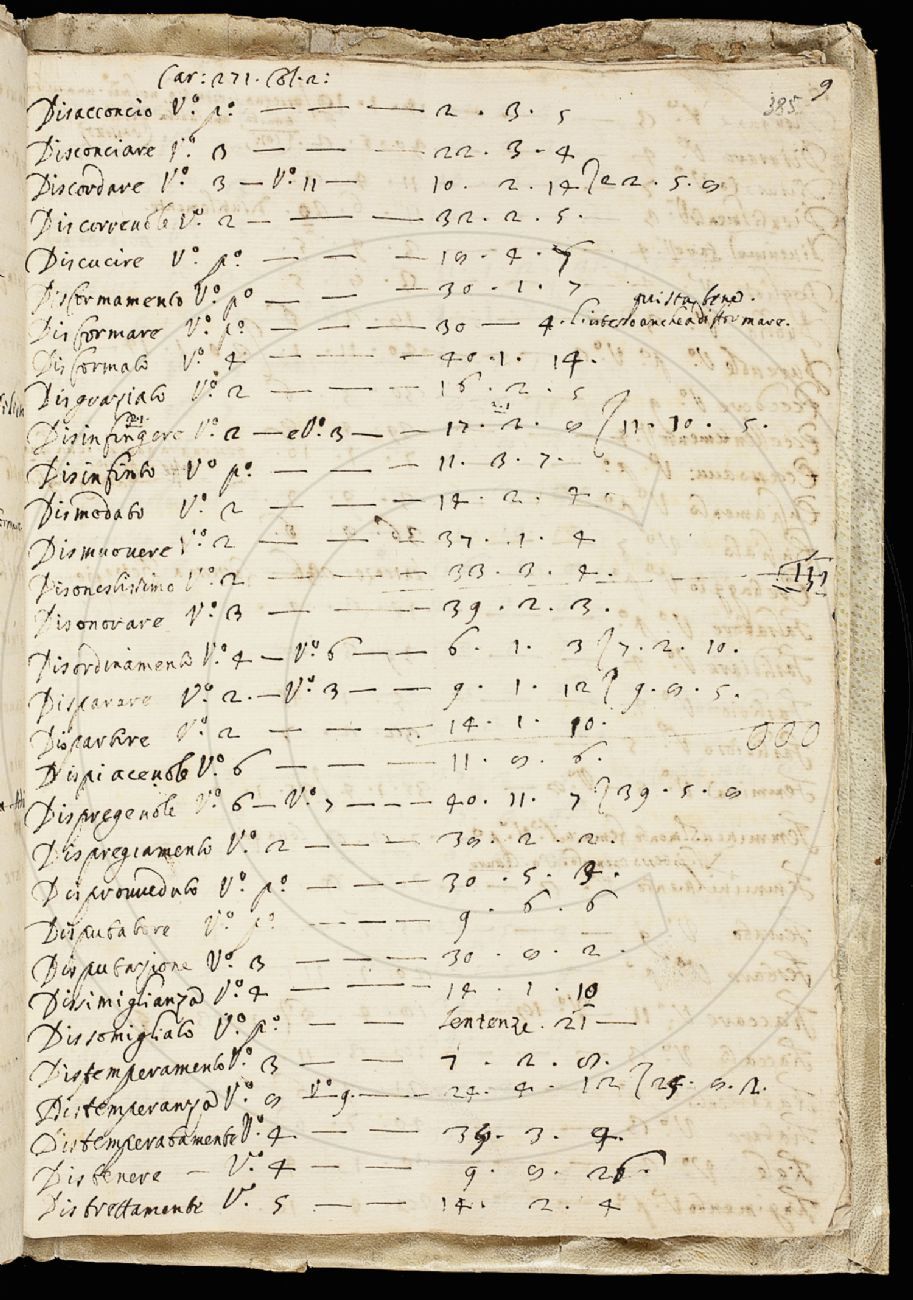 Car: 271. Col. 2:
385 9
Disacconcio V.º p.º — — — — 2 . 3 . 5
Disconciare V.º 3 — — — — 22 . 3 . 4
Discordare V.º 3 — V.º 11 — 10 . 2 . 14 } 22 . 5 . 8
Discorrevole V.º 2 — — — 32 . 2 . 5 .
Discucire V.º p.º — — — 18 . 4 . 7
Disformamento V.º p.º — — — 30 . 1 . 7
qui sta bene .
Disformare V.º p.º — — — 30 — 4 . l'istesso anche a disformare .
Disformato V.º 4 — — — — 40 . 1 . 14 .
Disgraziato V.º 2 — — — 16 . 2 . 5
Disinfingere V.º 2 — e V.º 3 — — 17 . 2 . 8 } 11 . 10 . 5 .
Disinfinto V.º p.º — — — 11 . 3 . 7 .
Dismodato V.º 2 — — — 14 . 2 . 4 .
Dismuovere V.º 2 — — — 37 . 1 . 4
Disonestissimo V.º 2 — — — — 33 . 3 . 4 .
Disonorare V.º 3 — — — 39 . 2 . 3 .
Disordinamento V.º 4 — V.º 6 — — 6 . 1 . 3 } 7 . 2 . 10 .
Disparare V.º 2 . — V.º 3 — — 9 . 1 . 12 } 9 . 8 . 5 .
Dispartire V.º 2 — — — 14 . 1 . 10 .
000
Dispiacevole V.º 6 — — — 11 . 8 . 6 .
Dispregevole V.º 6 — V.º 7 — — — 40 . 11 . 7 } 39 . 5 . 8
Dispregiamento V.º 2 — — — 38 . 2 . 2 .
Disprovveduto V.º p.º — — — 30 . 5 . 4 .
Disputatore V.º p.º — — — 9 . 6 . 6
Disputazione V.º 3 — — — 30 . 8 . 2 .
Dissimiglianza V.º 4 — — — — 14 . 1 . 10
Dissomigliato V.º p.º — — — Sentenze . 21 —
Distemperamento V.º 3 — — — 7 . 2 . 8 .
Distemperanza V.º 8 V.º 9 . — — — 24 . 4 . 12 } 24 . 8 . 2 .
Distemperatamente V.º 4 — — — 39 . 3 . 4 .
Distenere — V.º 4 — — — 9 . 8 . 26 .
Distrettamente V.º 5 — — — 14 . 2 . 4